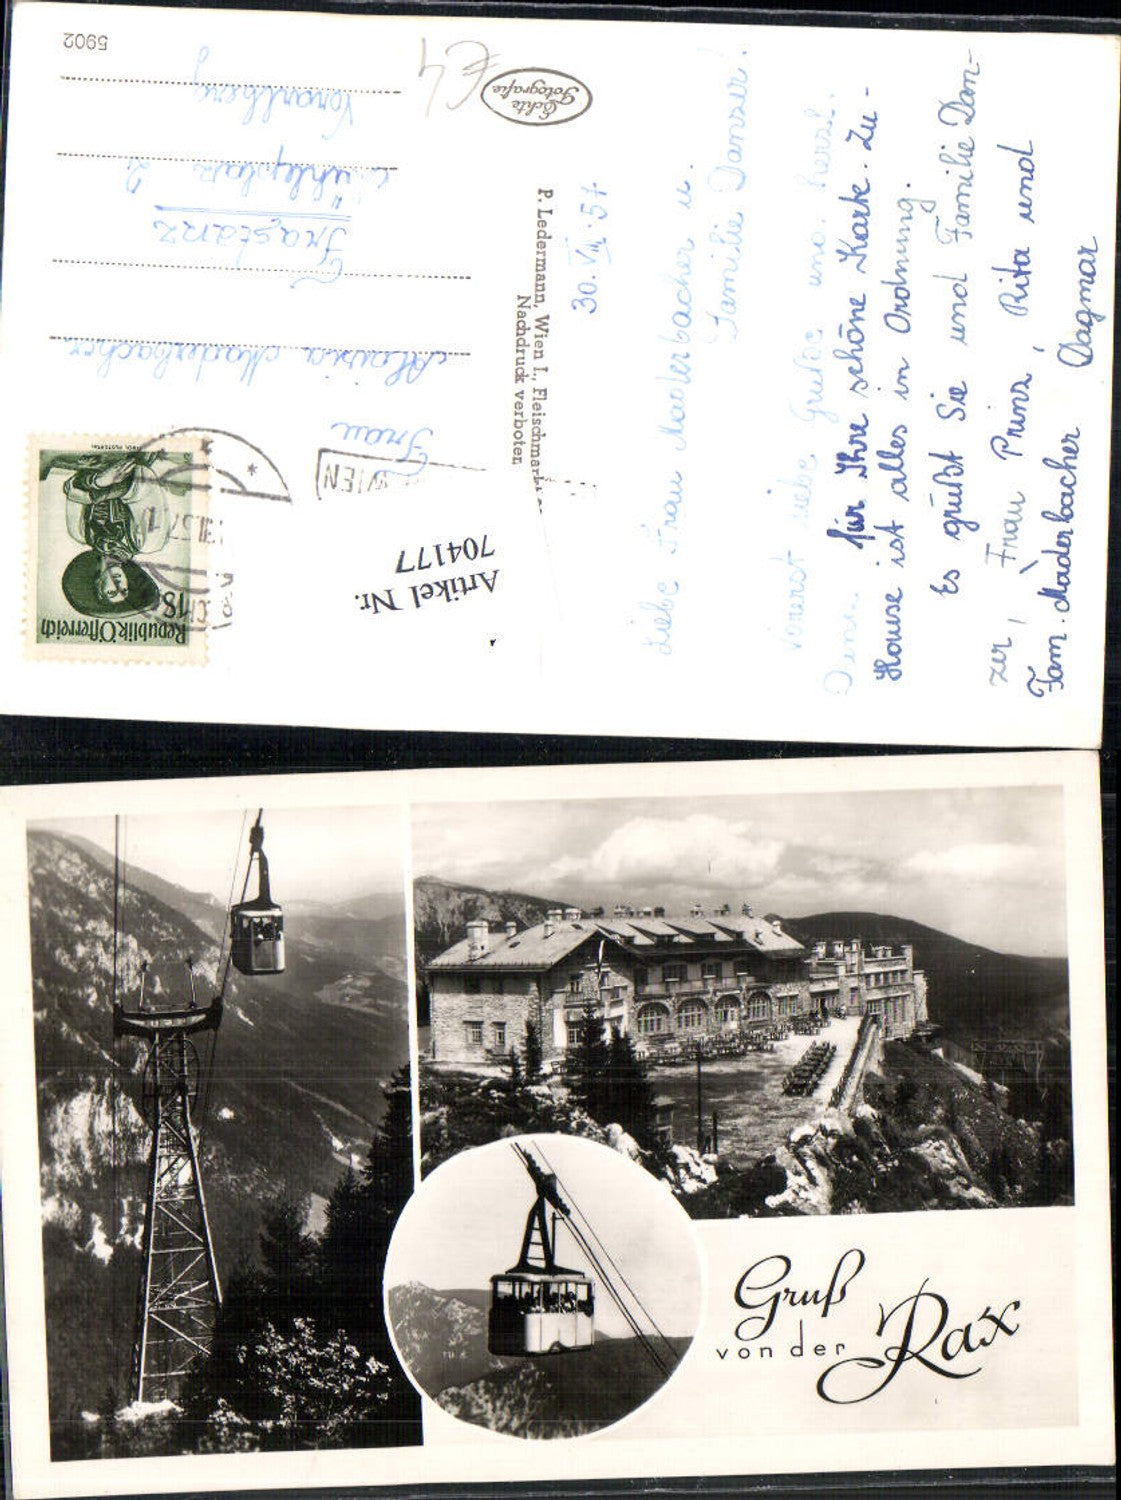 5902
€4
Echte
Fotografie
P. Ledermann, Wien I., Fleischmarkt
Nachdruck verboten
Republik Österreich
WIEN
Artikel Nr.
704177
Frau
Maria Maderbacher
Frastanz
Mühleplatz 2
Vorarlberg
30. VIII. 57
Liebe Frau Maderbacher u.
Familie Danzer!
Vorerst liebe Grüße und herzl.
für Ihre schöne Karte. Zu-
Hause ist alles in Ordnung.
Es grüßt Sie und Familie Dan-
zer, Frau Prinz, Rita und
Fam. Maderbacher Dagmar
Gruß
von der
Rax